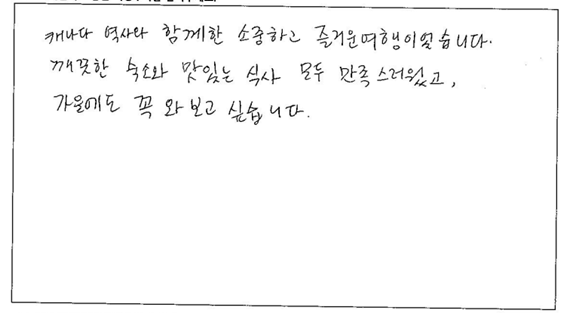 캐나다 역사와 함께한 소중하고 즐거운여행이었습니다.
깨끗한 숙소와 맛있는 식사 모두 만족스러웠고,
가을에도 꼭 와보고 싶습니다.